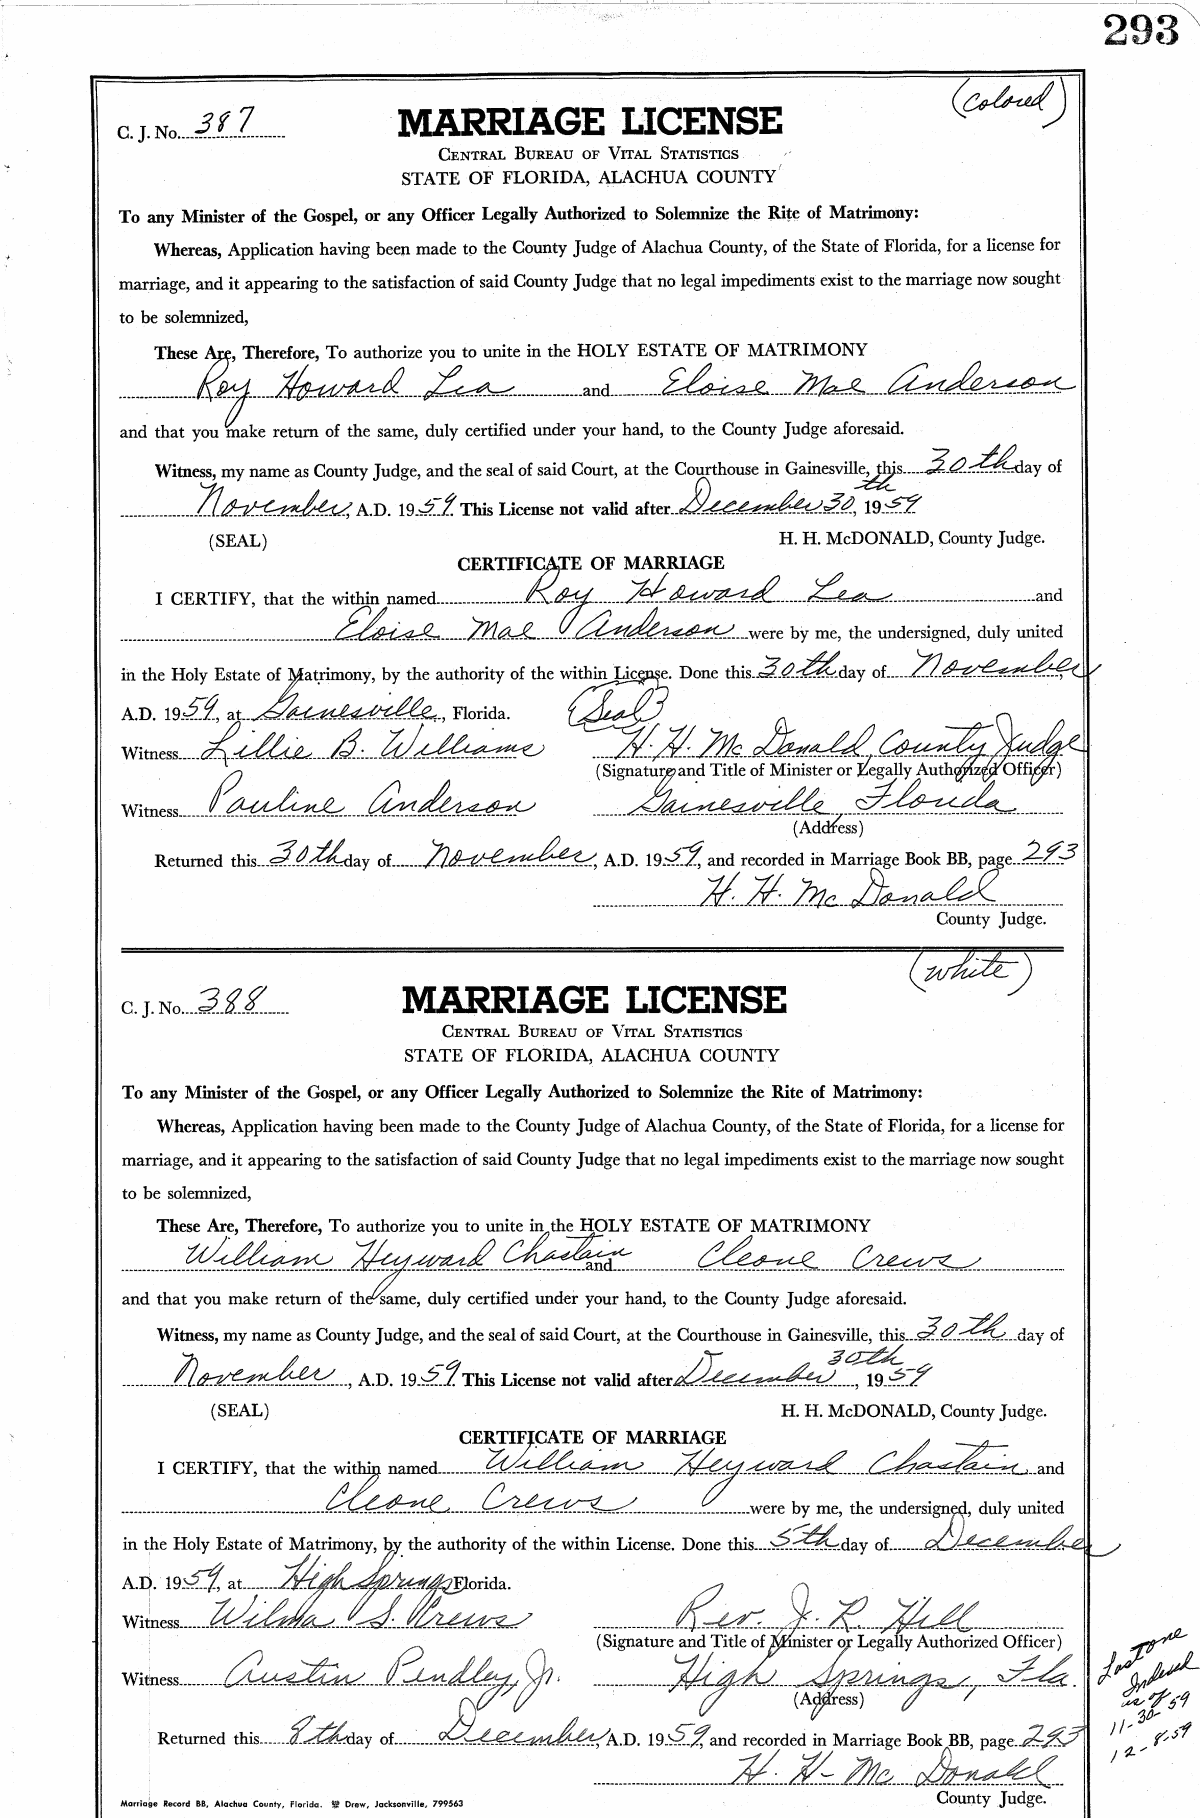 293
(colored)
C. J. No. 387
MARRIAGE LICENSE
CENTRAL BUREAU OF VITAL STATISTICS
STATE OF FLORIDA, ALACHUA COUNTY
To any Minister of the Gospel, or any Officer Legally Authorized to Solemnize the Rite of Matrimony:
Whereas, Application having been made to the County Judge of Alachua County, of the State of Florida, for a license for
marriage, and it appearing to the satisfaction of said County Judge that no legal impediments exist to the marriage now sought
to be solemnized,
These Are, Therefore, To authorize you to unite in the HOLY ESTATE OF MATRIMONY
Roy Howard Lea and Eloise Mae Anderson
and that you make return of the same, duly certified under your hand, to the County Judge aforesaid.
Witness, my name as County Judge, and the seal of said Court, at the Courthouse in Gainesville, this 30th day of
November, A.D. 1959. This License not valid after December 30th, 1959
(SEAL) H. H. McDONALD, County Judge.
CERTIFICATE OF MARRIAGE
I CERTIFY, that the within named Roy Howard Lea and
Eloise Mae Anderson were by me, the undersigned, duly united
in the Holy Estate of Matrimony, by the authority of the within License. Done this 30th day of November
A.D. 1959, at Gainesville, Florida. (Seal)
Witness Lillie B. Williams H. H. McDonald, County Judge
(Signature and Title of Minister or Legally Authorized Officer)
Witness Pauline Anderson Gainesville Florida
(Address)
Returned this 30th day of November, A.D. 1959, and recorded in Marriage Book BB, page 293
H. H. McDonald
County Judge.
(white)
C. J. No. 388
MARRIAGE LICENSE
CENTRAL BUREAU OF VITAL STATISTICS
STATE OF FLORIDA, ALACHUA COUNTY
To any Minister of the Gospel, or any Officer Legally Authorized to Solemnize the Rite of Matrimony:
Whereas, Application having been made to the County Judge of Alachua County, of the State of Florida, for a license for
marriage, and it appearing to the satisfaction of said County Judge that no legal impediments exist to the marriage now sought
to be solemnized,
These Are, Therefore, To authorize you to unite in the HOLY ESTATE OF MATRIMONY
William Heyward Chastain and Cleone Crews
and that you make return of the same, duly certified under your hand, to the County Judge aforesaid.
Witness, my name as County Judge, and the seal of said Court, at the Courthouse in Gainesville, this 30th day of
November, A.D. 1959. This License not valid after December 30th, 1959
(SEAL) H. H. McDONALD, County Judge.
CERTIFICATE OF MARRIAGE
I CERTIFY, that the within named William Heyward Chastain and
Cleone Crews were by me, the undersigned, duly united
in the Holy Estate of Matrimony, by the authority of the within License. Done this 5th day of December
A.D. 1959, at High Springs Florida.
Witness Wilma S. Crews Rev. J. R. Hill
(Signature and Title of Minister or Legally Authorized Officer)
Witness Austin Pendley, Jr. High Springs, Fla.
(Address)
Returned this 8th day of December, A.D. 1959, and recorded in Marriage Book BB, page 293
H. H. McDonald
County Judge.
Last one
Indexed
as of
11-30-59
12-8-59
Marriage Record BB, Alachua County, Florida. Drew, Jacksonville, 799563